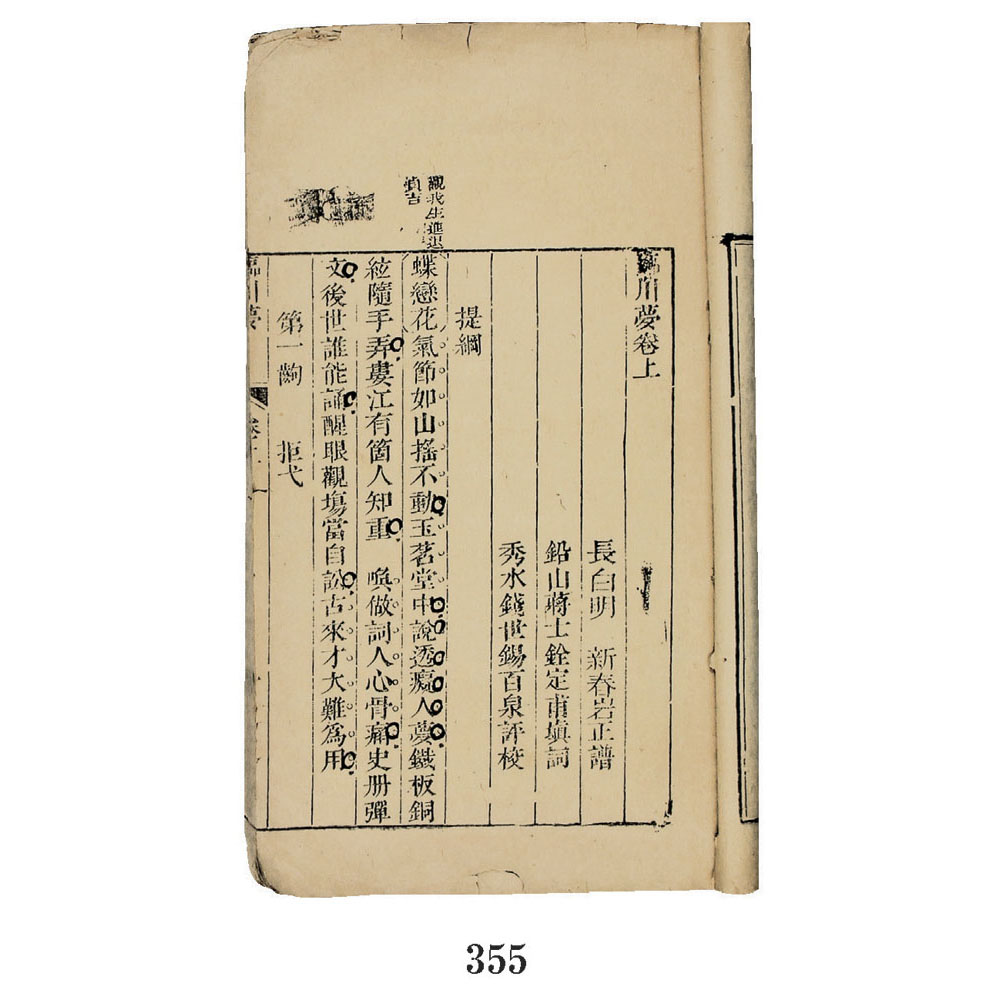 臨川夢卷上
長白明　新春岩正譜
鉛山蔣士銓定甫塡詞
秀水錢世錫百泉評校
提綱
觀我生進退
貞吉
蝶戀花氣節如山搖不動玉茗堂中說透癡人夢鐵板銅
絃隨手弄婁江有箇人知重　喚做詞人心骨痛史册彈
文後世誰能誦醒眼觀塲當自訟古來才大難爲用
第一齣　拒弋
臨川夢
355